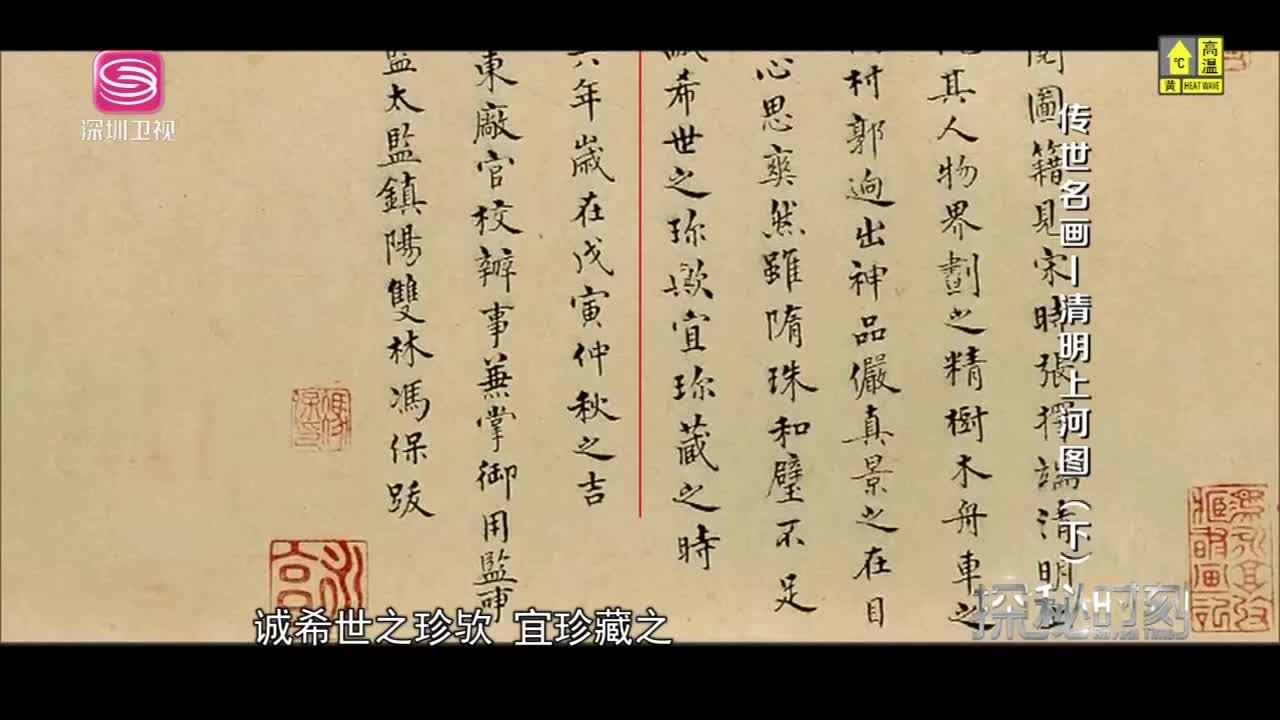 深圳卫视
高温
℃
黄
HEAT WAVE
传世名画—清明上河图（下）
閱圖籍見宋時張擇端清明上
其人物界劃之精樹木舟車之
村郭逈出神品儼真景之在目
心思爽然雖隋珠和璧不足
誠希世之珎歟宜珎藏之時
六年歲在戊寅仲秋之吉
東廠官校辦事兼掌御用監事
監太監鎮陽雙林馮保跋
探秘时刻
诚希世之珍欤 宜珍藏之